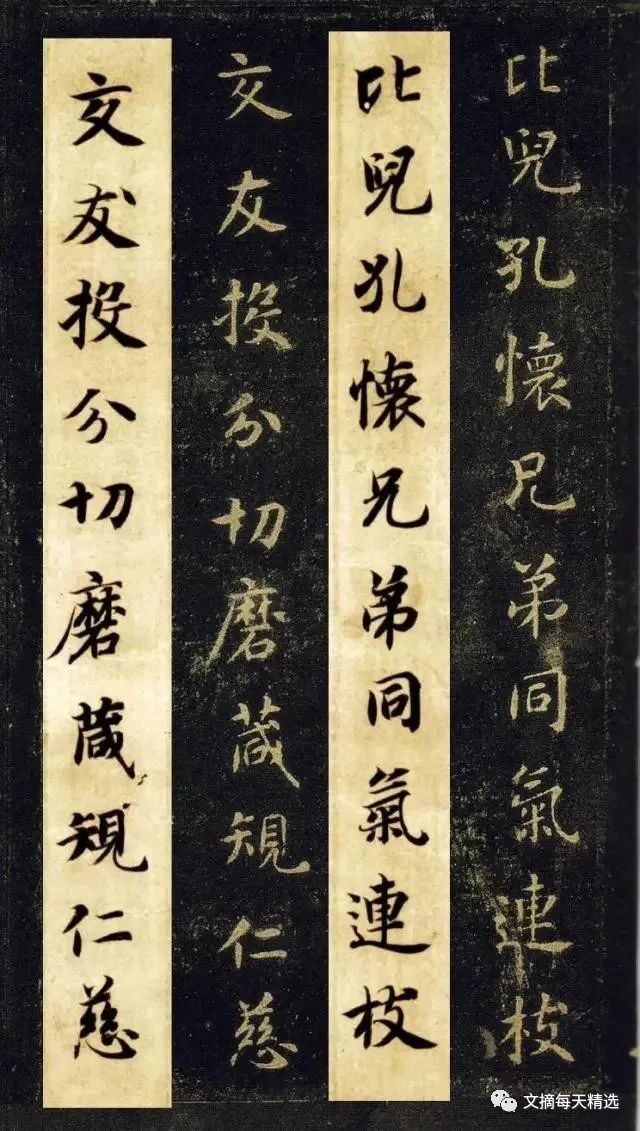 比兒孔懷兄弟同氣連枝
比兒孔懷兄弟同氣連枝
交友投分切磨葴規仁慈
交友投分切磨葴規仁慈
文摘每天精选